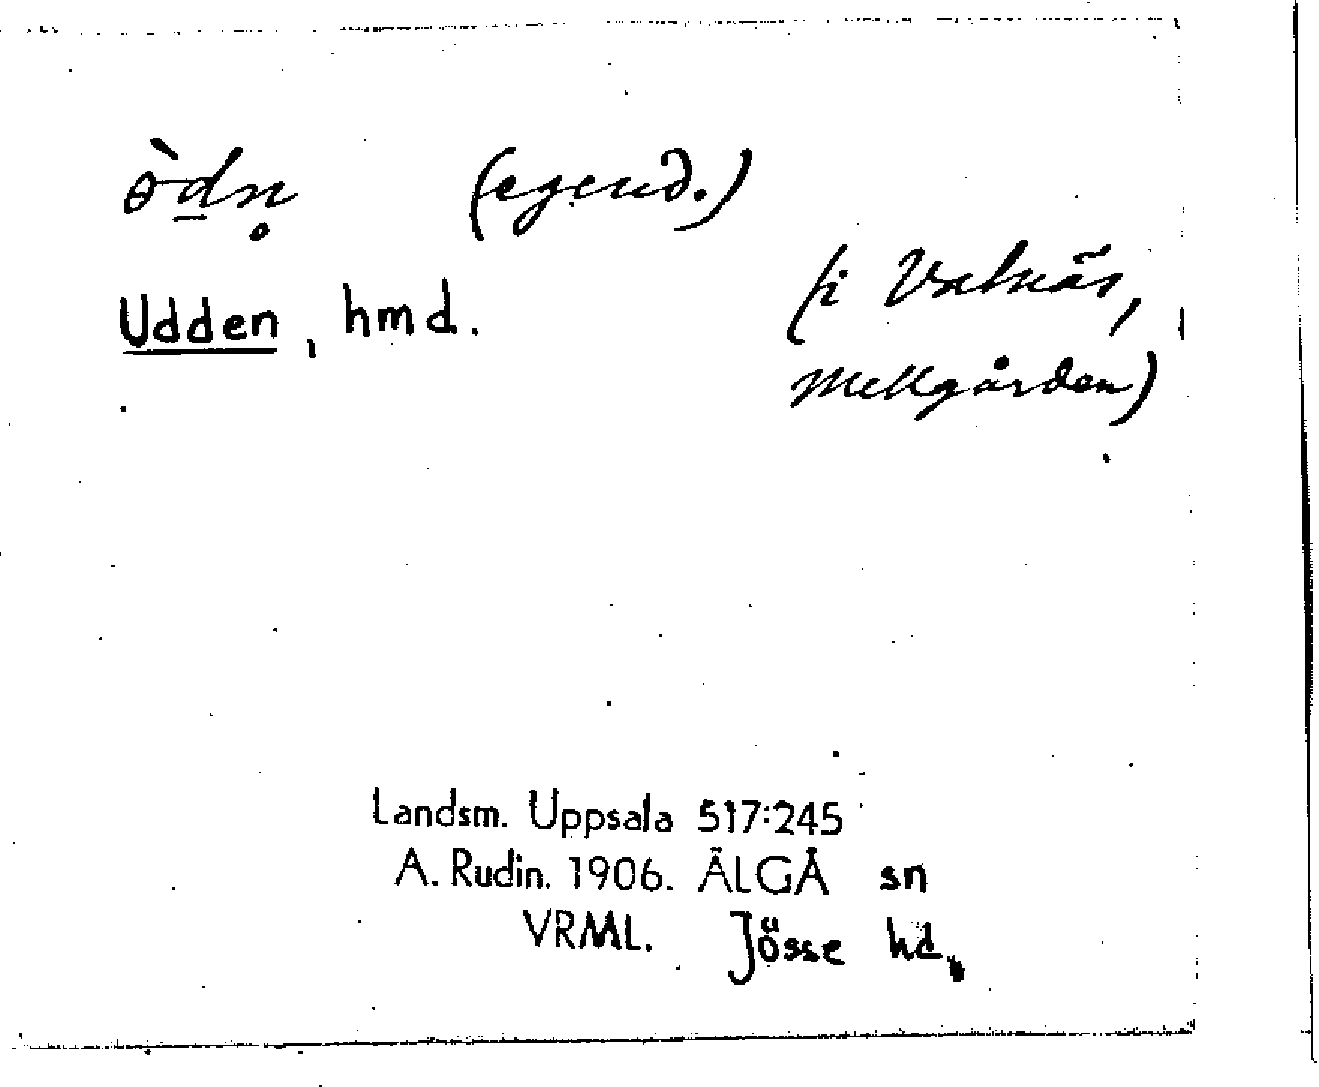 ɵ̀dn̥ (egend.)
Udden, hmd. (i Valnäs,
Mellgården)
Landsm. Uppsala 517:245
A. Rudin. 1906. ÄLGÅ sn
VRML. Jösse hd.